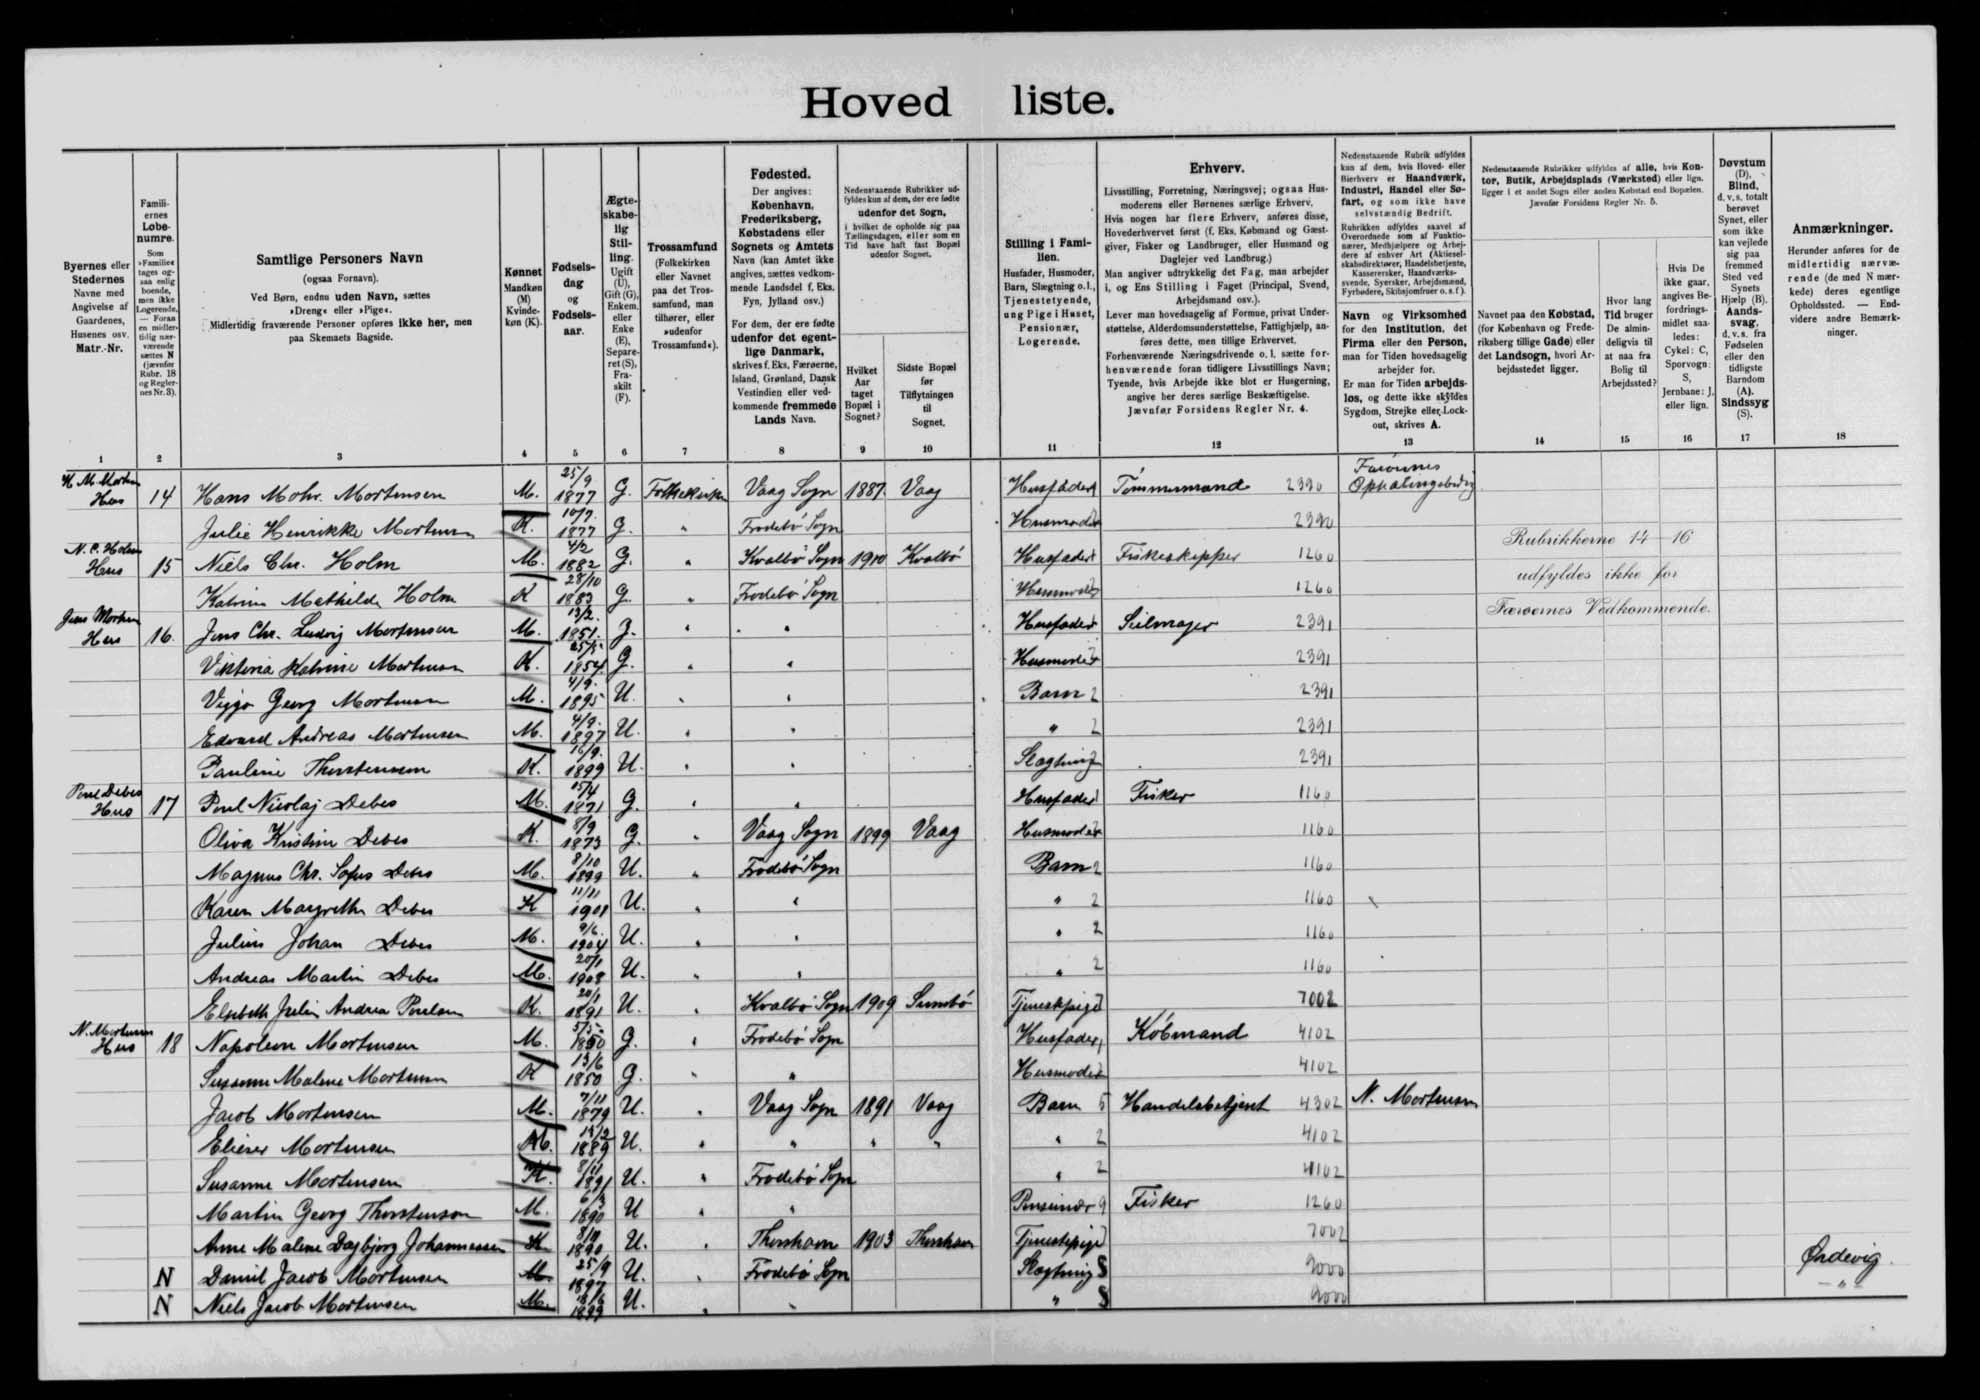 Hoved liste.
Byernes eller Stedernes Navne med Angivelse af Gaardenes, Husenes osv. Matr.-Nr.
Familiernes Løbenumre. Som »Familie« tages ogsaa enlig boende, men ikke Logerende, — Foran en midlertidig nærværende sættes N (jævnfør Rubr. 18 og Reglernes Nr. 3).
Samtlige Personers Navn (ogsaa Fornavn). Ved Børn, endnu uden Navn, sættes »Dreng« eller »Pige«. Midlertidig fraværende Personer opføres ikke her, men paa Skemaets Bagside.
Kønnet Mandkøn (M) Kvindekøn (K).
Fødselsdag og Fødselsaar.
Ægteskabelig Stilling. Ugift (U), Gift (G), Enkem. eller Enke (E), Separeret (S), Fraskilt (F).
Trossamfund (Folkekirken eller Navnet paa det Trossamfund, man tilhører, eller »udenfor Trossamfund«).
Fødested. Der angives: København, Frederiksberg, Købstadens eller Sognets og Amtets Navn (kan Amtet ikke angives, sættes vedkommende Landsdel f. Eks. Fyn, Jylland osv.) For dem, der ere fødte udenfor det egentlige Danmark, skrives f. Eks. Færøerne, Island, Grønland, Dansk Vestindien eller vedkommende fremmede Lands Navn.
Nedenstaaende Rubrikker udfyldes kun af dem, der ere fødte udenfor det Sogn, i hvilket de opholde sig paa Tællingsdagen, eller som en Tid have haft fast Bopæl udenfor Sognet.
Hvilket Aar taget Bopæl i Sognet?
Sidste Bopæl før Tilflytningen til Sognet.
Stilling i Familien. Husfader, Husmoder, Barn, Slægtning o.l., Tjenestetyende, ung Pige i Huset, Pensionær, Logerende.
Erhverv. Livsstilling, Forretning, Næringsvej; ogsaa Husmoderens eller Børnenes særlige Erhverv. Hvis nogen har flere Erhverv, anføres disse, Hovederhvervet først (f. Eks. Købmand og Gæstgiver, Fisker og Landbruger, eller Husmand og Daglejer ved Landbrug.) Man angiver udtrykkelig det Fag, man arbejder i, og Ens Stilling i Faget (Principal, Svend, Arbejdsmand osv.). Lever man hovedsagelig af Formue, privat Understøttelse, Alderdomsunderstøttelse, Fattighjælp, anføres dette, men tillige Erhvervet. Forhenværende Næringsdrivende o. l. sætte forhenværende foran tidligere Livsstillings Navn; Tyende, hvis Arbejde ikke blot er Husgerning, angive her deres særlige Beskæftigelse. Jævnfør Forsidens Regler Nr. 4.
Nedenstaaende Rubrik udfyldes kun af dem, hvis Hoved- eller Bierhverv er Haandværk, Industri, Handel eller Søfart, og som ikke have selvstændig Bedrift. Rubrikken udfyldes saavel af Overordnede som af Funktionærer, Medhjælpere og Arbejdere af enhver Art (Aktieselskabsdirektører, Handelsbetjente, Kasserersker, Haandværkssvende, Syersker, Arbejdsmænd, Fyrbødere, Skibsjomfruer o.s.f.).
Navn og Virksomhed for den Institution, det Firma eller den Person, man for Tiden hovedsagelig arbejder for. Er man for Tiden arbejdsløs, og dette ikke skyldes Sygdom, Strejke eller Lockout, skrives A.
Nedenstaaende Rubrikker udfyldes af alle, hvis Kontor, Butik, Arbejdsplads (Værksted) eller lign. ligger i et andet Sogn eller anden Købstad end Bopælen. Jævnfør Forsidens Regler Nr. 5.
Navnet paa den Købstad, (for København og Frederiksberg tillige Gade) eller det Landsogn, hvori Arbejdsstedet ligger.
Hvor lang Tid bruger De almindeligvis til at naa fra Bolig til Arbejdssted?
Hvis De ikke gaar, angives Befordringsmidlet saaledes: Cykel: C, Sporvogn: S, Jernbane: J, eller lign.
Døvstum (D). Blind, d.v.s. totalt berøvet Synet, eller som ikke kan vejlede sig paa fremmed Sted ved Synets Hjælp (B). Aandssvag, d.v.s. fra Fødselen eller den tidligste Barndom (A). Sindssyg (S).
Anmærkninger. Herunder anføres for de midlertidig nærværende (de med N mærkede) deres egentlige Opholdssted. — Endvidere andre Bemærkninger.
1 2 3 4 5 6 7 8 9 10 11 12 13 14 15 16 17 18
Hus 14 Hans Mohr. Mortensen M. 25/9 1877 G. Folkekirken Vaag Sogn 1887. Vaag Husfader Tømmermand 2390
Julie Henrikke Mortensen K. 10/7. 1877 G. " Frodebö Sogn Husmoder 2390
N. C. Holm Hus 15 Niels Chr. Holm M. 4/2 1882 G. " Kvalbö Sogn 1910 Kvalbö Husfader Fiskeskipper 1260
Rubrikkerne 14–16 udfyldes ikke for Færøernes Vedkommende.
Katrine Mathilde Holm K 28/10 1883 G. " Frodebö Sogn Husmoder 2 1260
Hus 16. Jens Chr. Ludvig Mortensen M. 13/2. 1851. G. " " Husfader Seilmager 2391
Viktoria Katrine Mortensen K. 1854 G. " " Husmoder 2 2391
Viggo Georg Mortensen M. 4/9. 1895 U. " " Barn 2 2391
Edvard Andreas Mortensen M. 4/9. 1897 U. " " " 2 2391
Pauline Thorstensen K. 16/9. 1899 U. " " Slægtning 2391
Poul Debes Hus 17 Poul Nicolaj Debes M. 15/4 1871 G. " " Husfader Fisker 1160
Oliva Kristine Debes K. 8/9 1873 G. " Vaag Sogn 1899 Vaag Husmoder 2 1160
Magnus Chr. Sofus Debes M. 8/10 1899 U. " Frodebö Sogn Barn 2 1160
Karen Margrethe Debes K 11/11 1901 U. " " " 2 1160
Julius Johan Debes M. 9/6. 1904 U. " " " 2 1160
Andreas Martin Debes M. 20/1 1908 U. " " " 2 1160
Elsebeth Julie Andrea Poulsen K. 20/1 1891 U. " Kvalbö Sogn 1909 Sumbö Tjenestepige 7 7002
N. Mortensen Hus 18 Napoleon Mortensen M. 1850 G. " Frodebö Sogn Husfader 1 Købmand 4102
Susanne Malene Mortensen K 13/6 1850 G. " " Husmoder 4102
Jacob Mortensen M. 7/11 1879 U. " Vaag Sogn 1891 Vaag Barn 5 Handelsbetjent 4302 N. Mortensen
Elieser Mortensen M. 1889 U. " " " " " 2 4102
Susanne Mortensen K. 8/11 1891 U. " Frodebö Sogn " 2 4102
Martin Georg Thorstenson M. 6/3 1890 U " " 9 Fisker 1260
Anne Malene Dagbjørg Johannessen K. 1890 U. " Thorshavn 1903 Thorshavn Tjenestepige 7 7002
N Daniel Jacob Mortensen M. 25/9 1897 U. " Frodebö Sogn Slægtning S 9000
N Niels Jacob Mortensen M. 1899 U. " " " S 9000 – " –